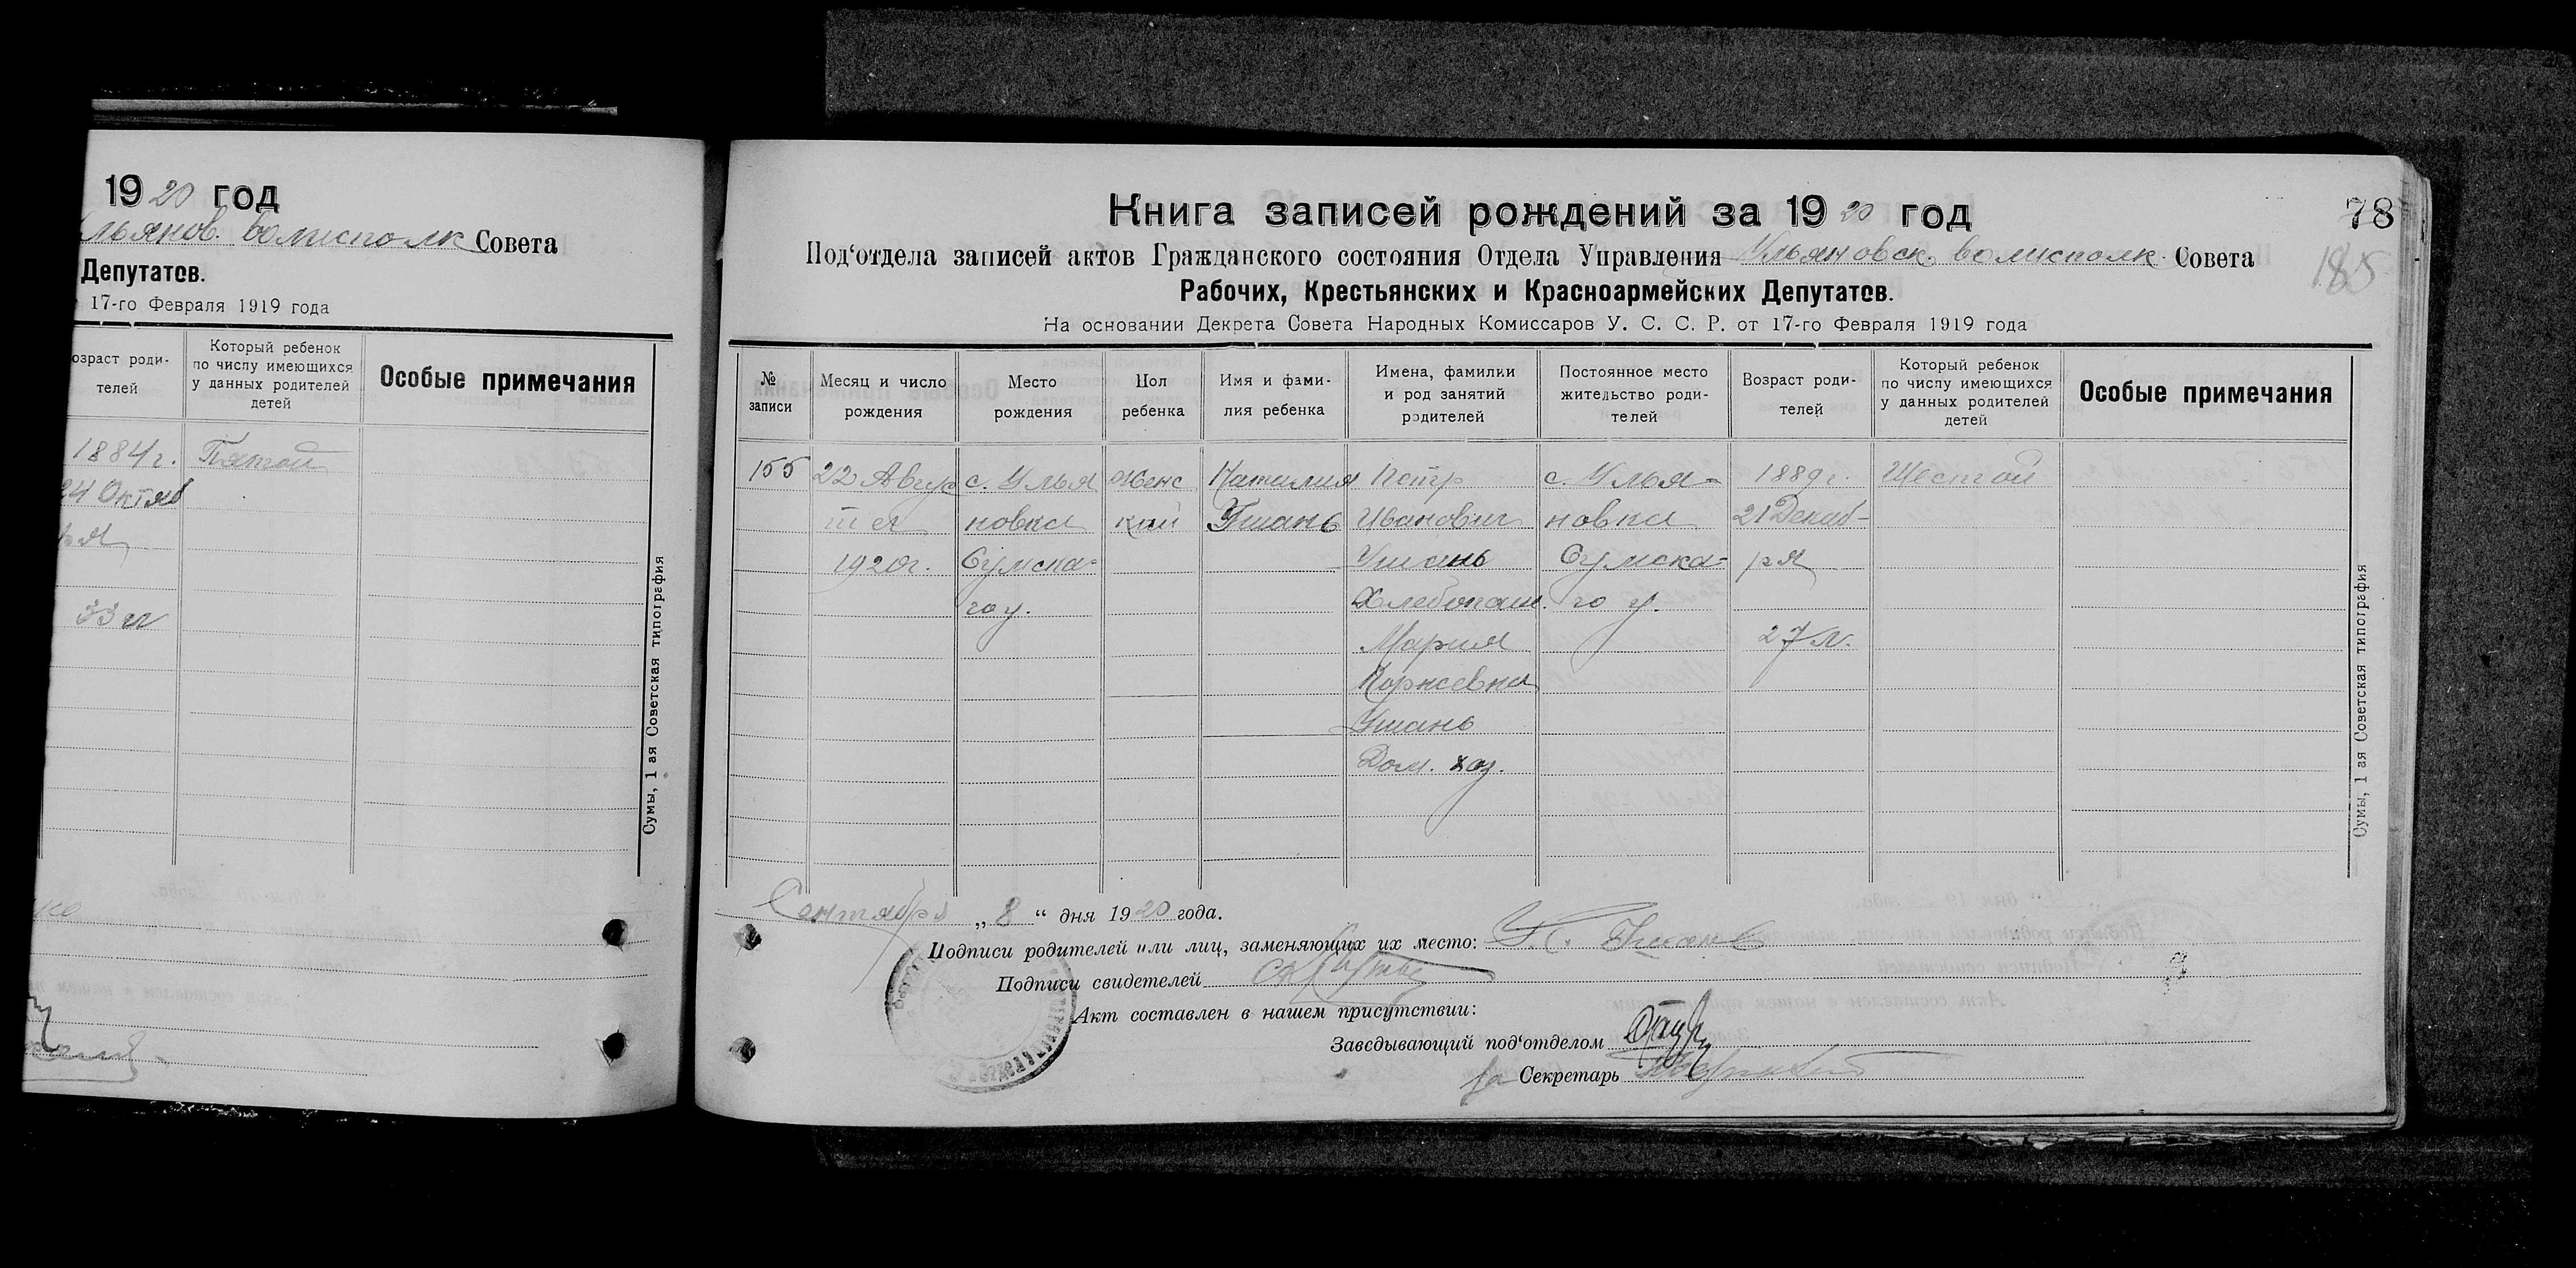 1920 год
льянов. волисполк Совета
Депутатов.
17-го Февраля 1919 года
озраст роди-
телей
Который ребенок
по числу имеющихся
у данных родителей
детей
Особые примечания
1884г.
Пятой
24 Октяб
ря
33 г
Сумы, 1 ая Советская типография
78
185
Книга записей рождений за 1920 год
Под‘отдела записей актов Гражданского состояния Отдела Управления Ульяновск. волисполк. Совета
Рабочих, Крестьянских и Красноармейских Депутатов.
На основании Декрета Совета Народных Комиссаров У. С. С. Р. от 17-го Февраля 1919 года
№
записи
Месяц и число
рождения
Место
рождения
Пол
ребенка
Имя и фами-
лия ребенка
Имена, фамилии
и род занятий
родителей
Постоянное место
жительство роди-
телей
Возраст роди-
телей
Который ребенок
по числу имеющихся
у данных родителей
детей
Особые примечания
155
22 Авгус
та
1920г.
с. Улья
новка
Сумска-
го у.
Женс
кий
Наталия
Петр
Иванович
Хлебопаш.
Мария
Корнеевна
Дом. хоз.
с. Улья-
новка
Сумска-
го у.
1889г.
21 Декаб-
ря
27 л.
Шестой
Сумы, 1 ая Советская типография
Сентября „8“ дня 1920 года.
Подписи родителей или лиц, заменяющих их место:
Подписи свидетелей
Акт составлен в нашем присутствии:
Заведывающий под‘отделом
за Секретарь